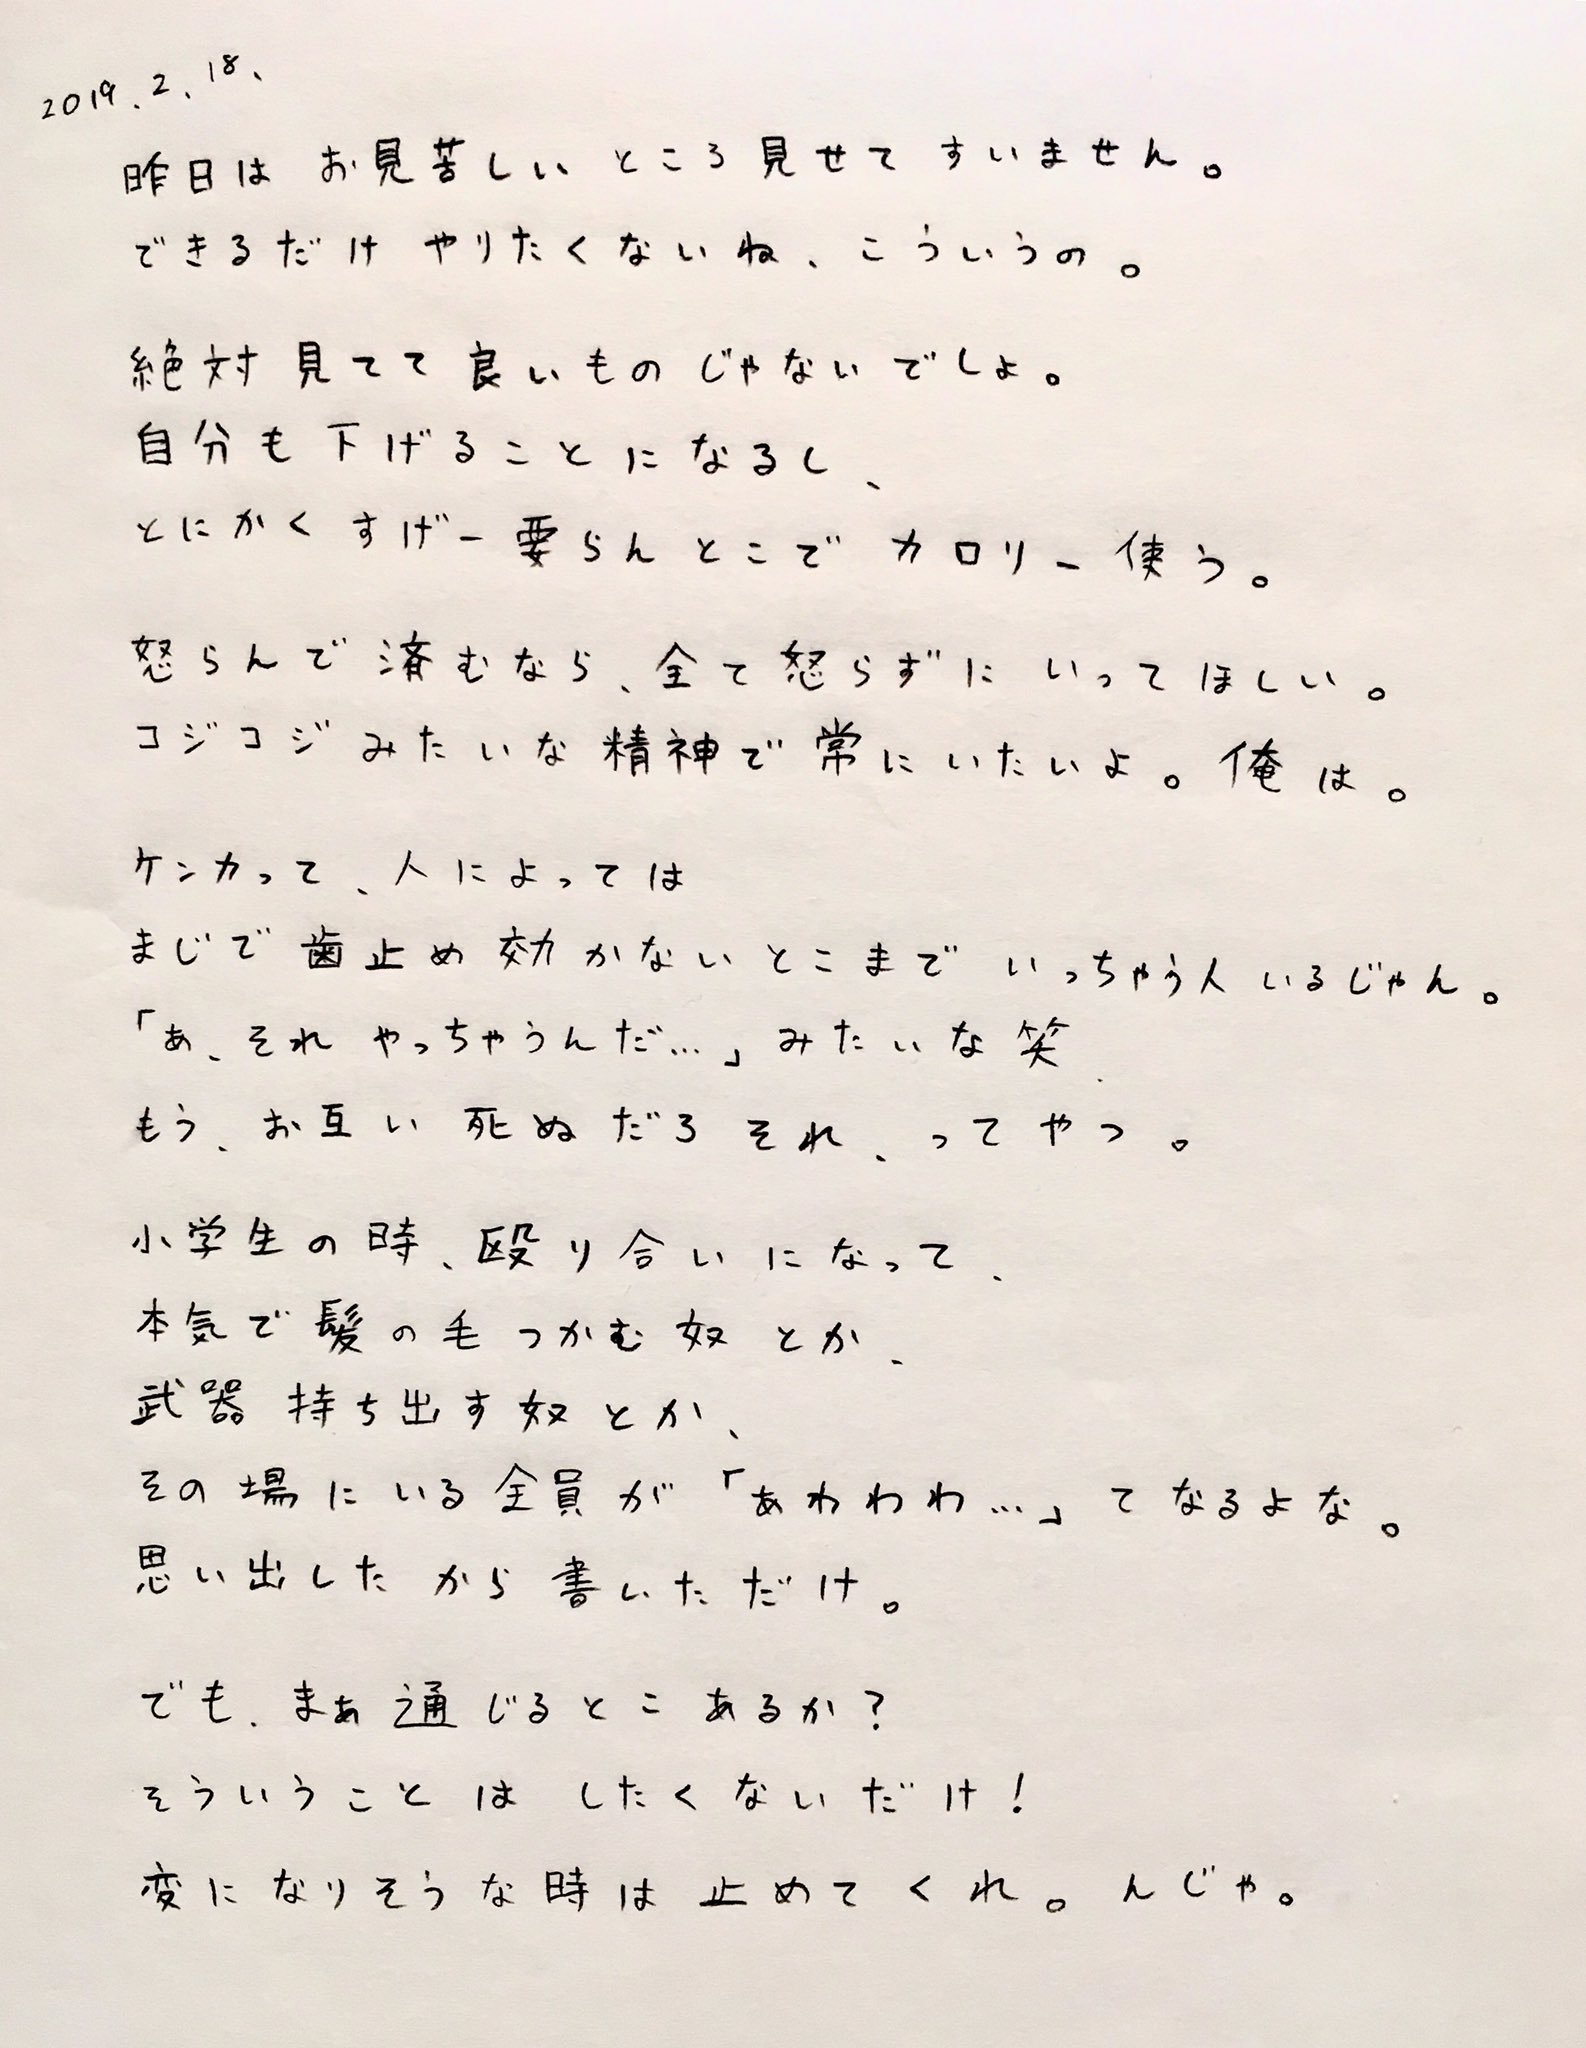 2019.2.18、
昨日は お見苦しい ところ 見せて すいません。
できるだけ やりたくないね、こういうの。
絶対 見てて 良いもの じゃないでしょ。
自分も 下げることに なるし、
とにかく すげー 要らんとこで カロリー 使う。
怒らんで 済むなら、全て 怒らずに いって ほしい。
コジコジ みたいな 精神で 常に いたいよ。俺は。
ケンカって、人によっては
まじで 歯止め 効かないとこまで いっちゃう人 いるじゃん。
「あ、それ やっちゃうんだ…」みたいな 笑
もう、お互い 死ぬだろ それ、って やつ。
小学生の時、殴り合いに なって、
本気で 髪の毛 つかむ 奴 とか、
武器 持ち出す 奴 とか、
その場に いる 全員が「あわわわ…」て なるよな。
思い出した から 書いただけ。
でも、まぁ 通じるとこ あるか?
そういうことは したくないだけ!
変に なりそうな 時は 止めてくれ。んじゃ。